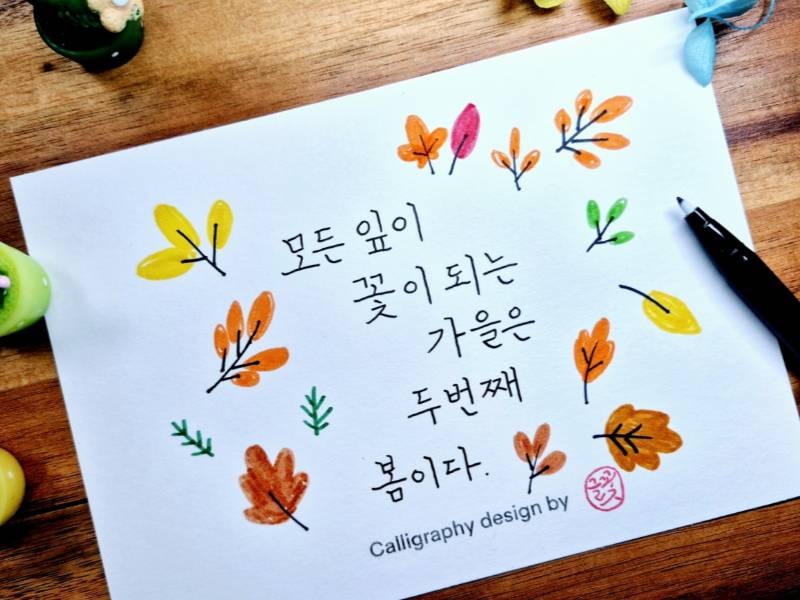 모든 잎이
꽃이 되는
가을은
두번째
봄이다.
Calligraphy design by